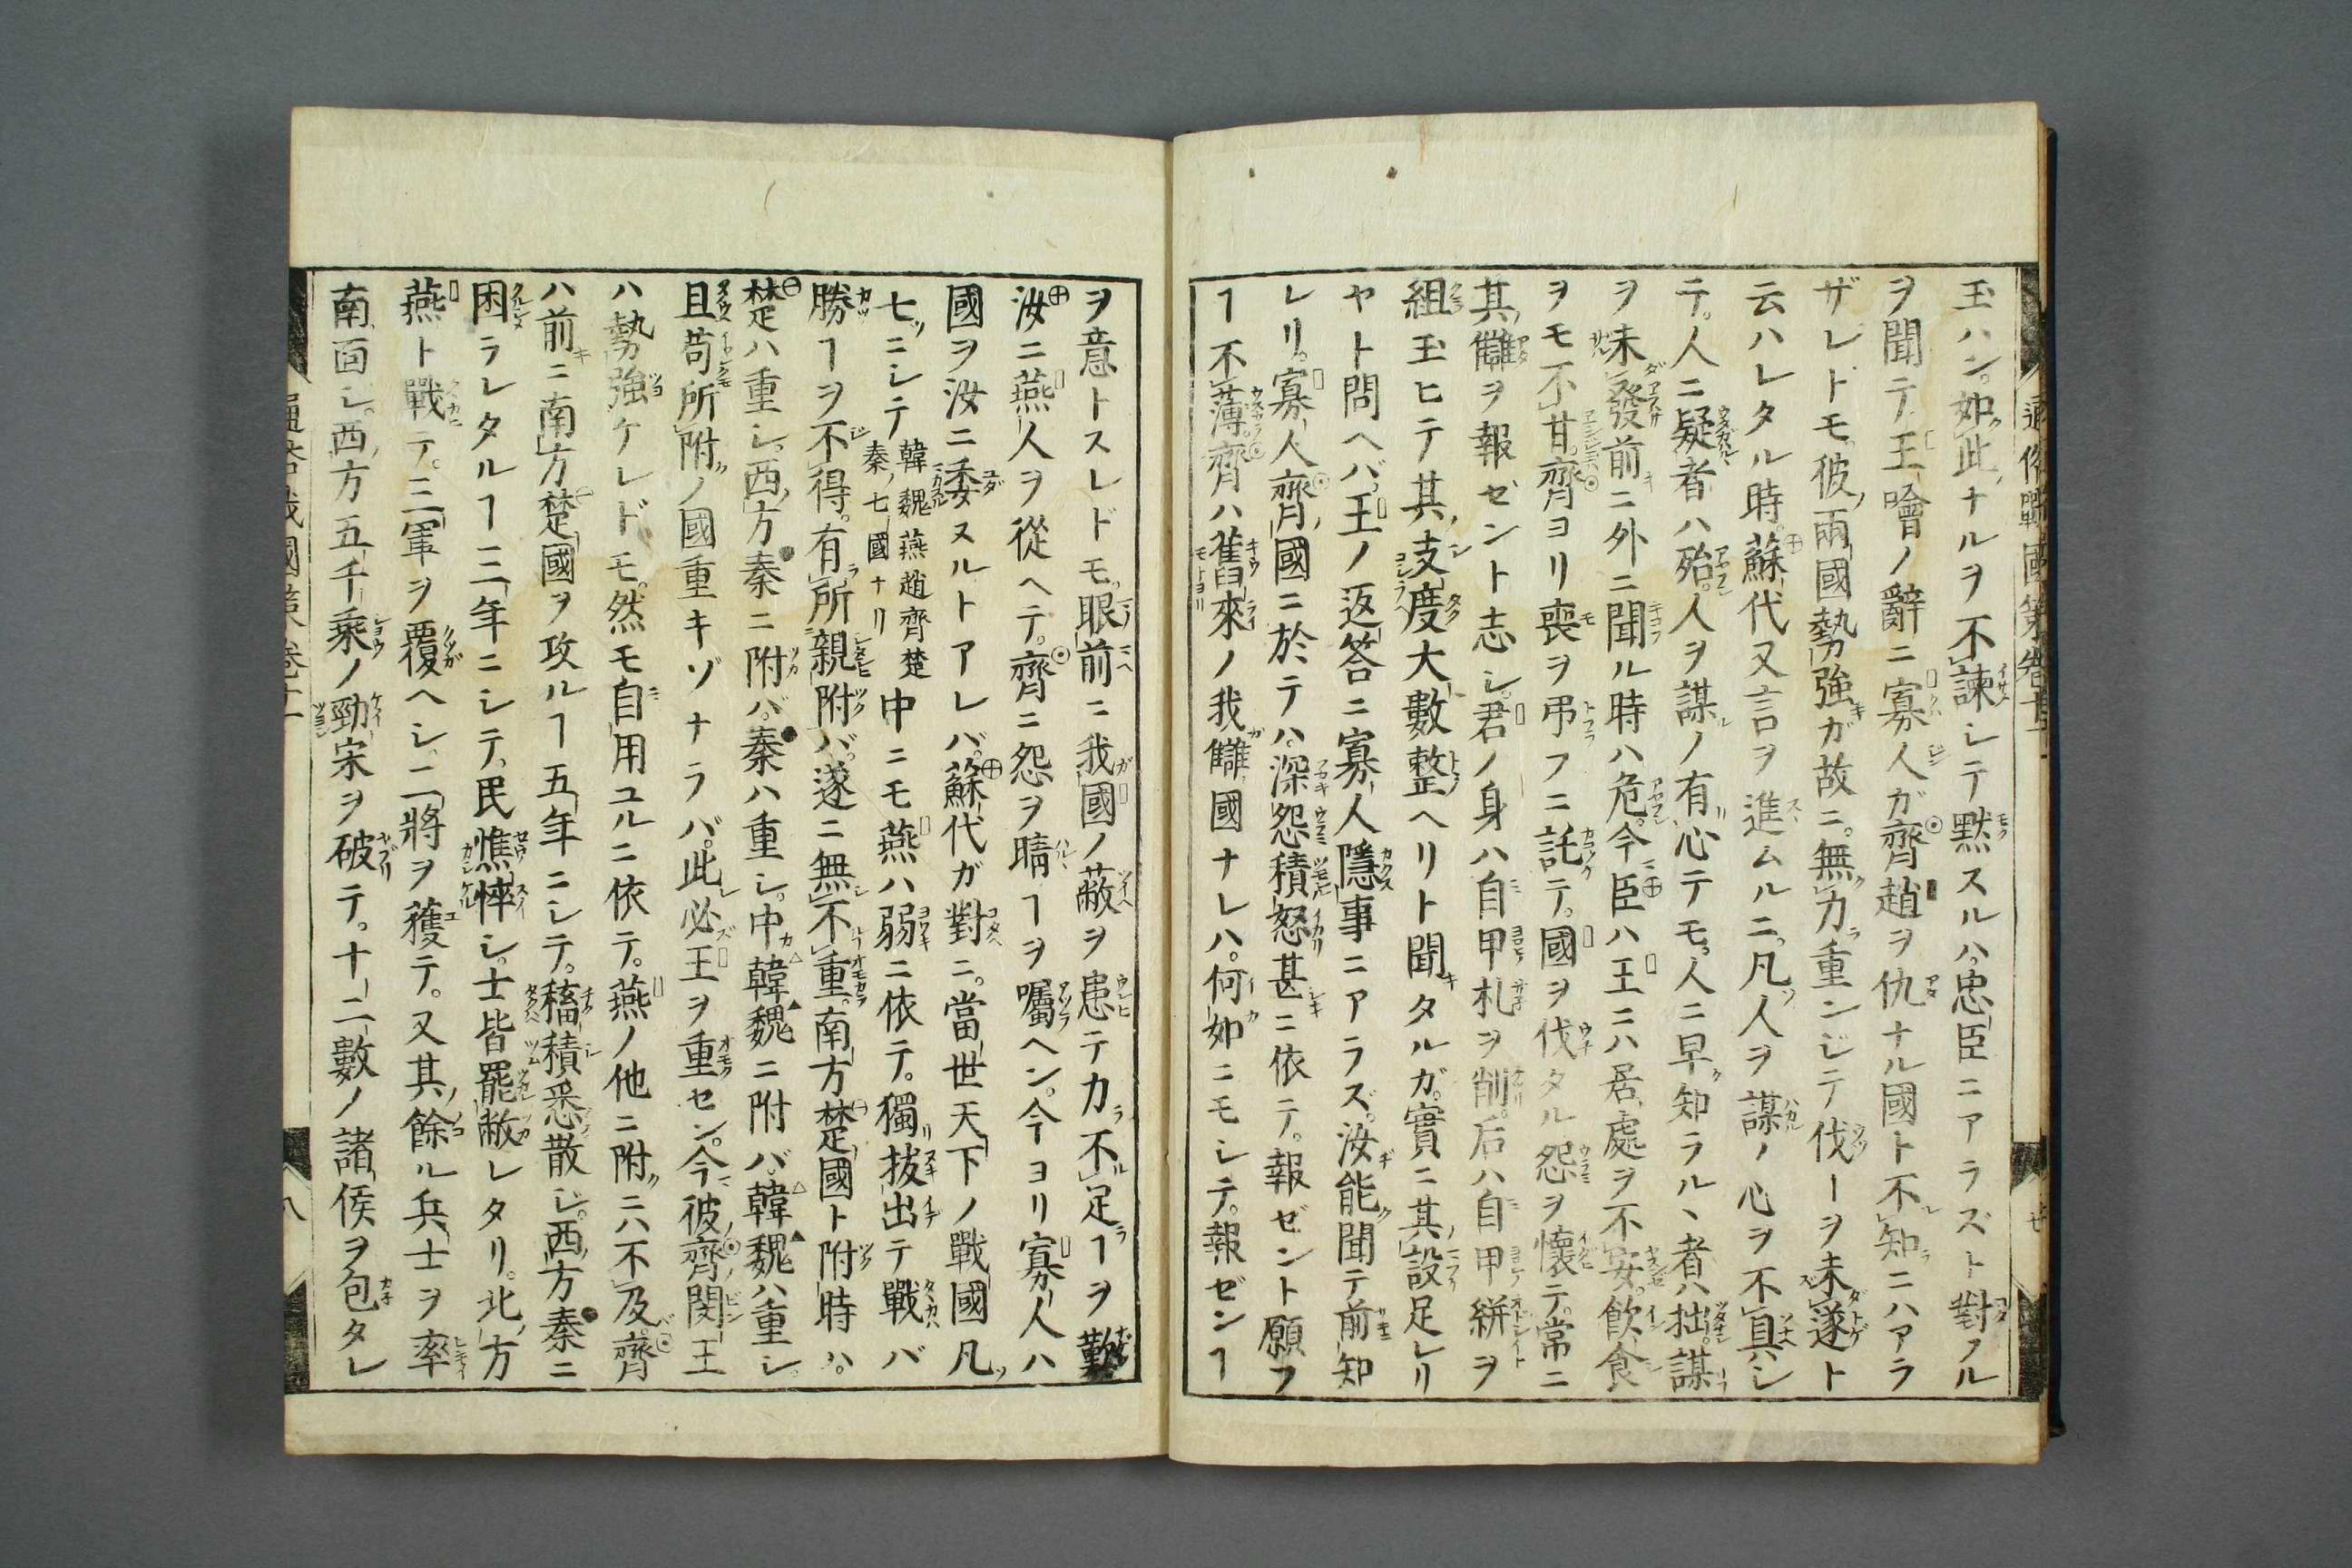 玉ハン。如此ナルヲ不諫シテ默スルハ。忠臣ニアラズト對フル
ヲ聞テ。王噲ノ辭ニ寡人ガ齊趙ヲ仇ナル國ト不知ニハアラ
ザレトモ。彼兩國勢強ガ故ニ。無力重ンジテ伐ヿヲ未遂ト
云ハレタル時。蘇代又言ヲ進ムルニ。凡人ヲ謀ノ心ヲ不具シ
テ。人ニ疑者ハ殆。人ヲ謀ノ有心テモ。人ニ早知ラルヽ者ハ拙。謀
ヲ未發前ニ外ニ聞ル時ハ危。今臣ハ王ニハ居處ヲ不安。飲食
ヲモ不甘。齊ヨリ喪ヲ弔フニ託テ。國ヲ伐タル怨ヲ懷テ。常ニ
其讎ヲ報ゼント志シ。君ノ身ハ自甲札ヲ削。后ハ自甲絣ヲ
組玉ヒテ其支度大數整ヘリト聞タルガ。實ニ其設足レリ
ヤト問ヘバ。王ノ返答ニ寡人隱事ニアラズ。汝能聞テ前知
レリ。寡人齊國ニ於テハ。深怨積怒甚ニ依テ。報ゼント願フ
ヿ不薄。齊ハ舊來ノ我讎國ナレハ。何如ニモシテ。報ゼンヿ
ヲ意トスレドモ。眼前ニ我國ノ蔽ヲ患テ力不足ヿヲ歎
汝ニ燕人ヲ從ヘテ。齊ニ怨ヲ晴ヿヲ囑ヘン。今ヨリ寡人ハ
國ヲ汝ニ委ヌルトアレバ。蘇代ガ對ニ。當世天下ノ戰國凡
七ツニシテ韓魏燕趙齊楚秦ノ七國ナリ中ニモ燕ハ弱ニ依テ。獨拔出テ戰バ
勝ヿヲ不得。有所親附バ。遂ニ無不重。南方楚國ト附時ハ。
楚ハ重シ。西方秦ニ附バ。秦ハ重シ。中韓魏ニ附バ。韓魏ハ重シ。
且苟所附ノ國重キゾナラバ。此必王ヲ重セン。今彼齊閔王
ハ勢強ケレドモ。然モ自用ユルニ依テ。燕ノ他ニ附ニハ不及。齊
ハ前ニ南方楚國ヲ攻ルヿ五年ニシテ。稸積悉散ジ。西方秦ニ
困ラレタルヿ三年ニシテ。民憔悴シ。士皆罷敝レタリ。北方
燕ト戰テ。三軍ヲ覆ヘシ。二將ヲ獲テ。又其餘ル兵士ヲ率
南面シ。西方五千乘ノ勁宋ヲ破テ。十二數ノ諸侯ヲ包タレ
通俗戰國策卷十一
八